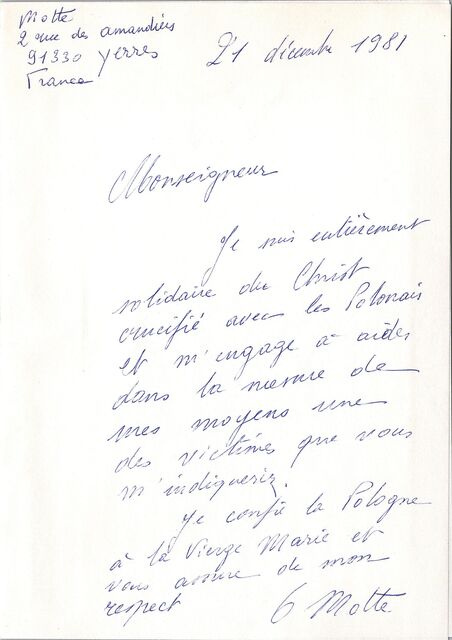 Motte
2 rue des amandiers
91330 Yerres
France
21 décembre 1981
Monseigneur
Je suis entièrement
solidaire du Christ
crucifié avec les Polonais
et m'engage à aider
dans la mesure de
mes moyens une
des victimes que vous
m'indiquerez.
Je confie la Pologne
à la Vierge Marie et
vous assure de mon
respect
G Motte